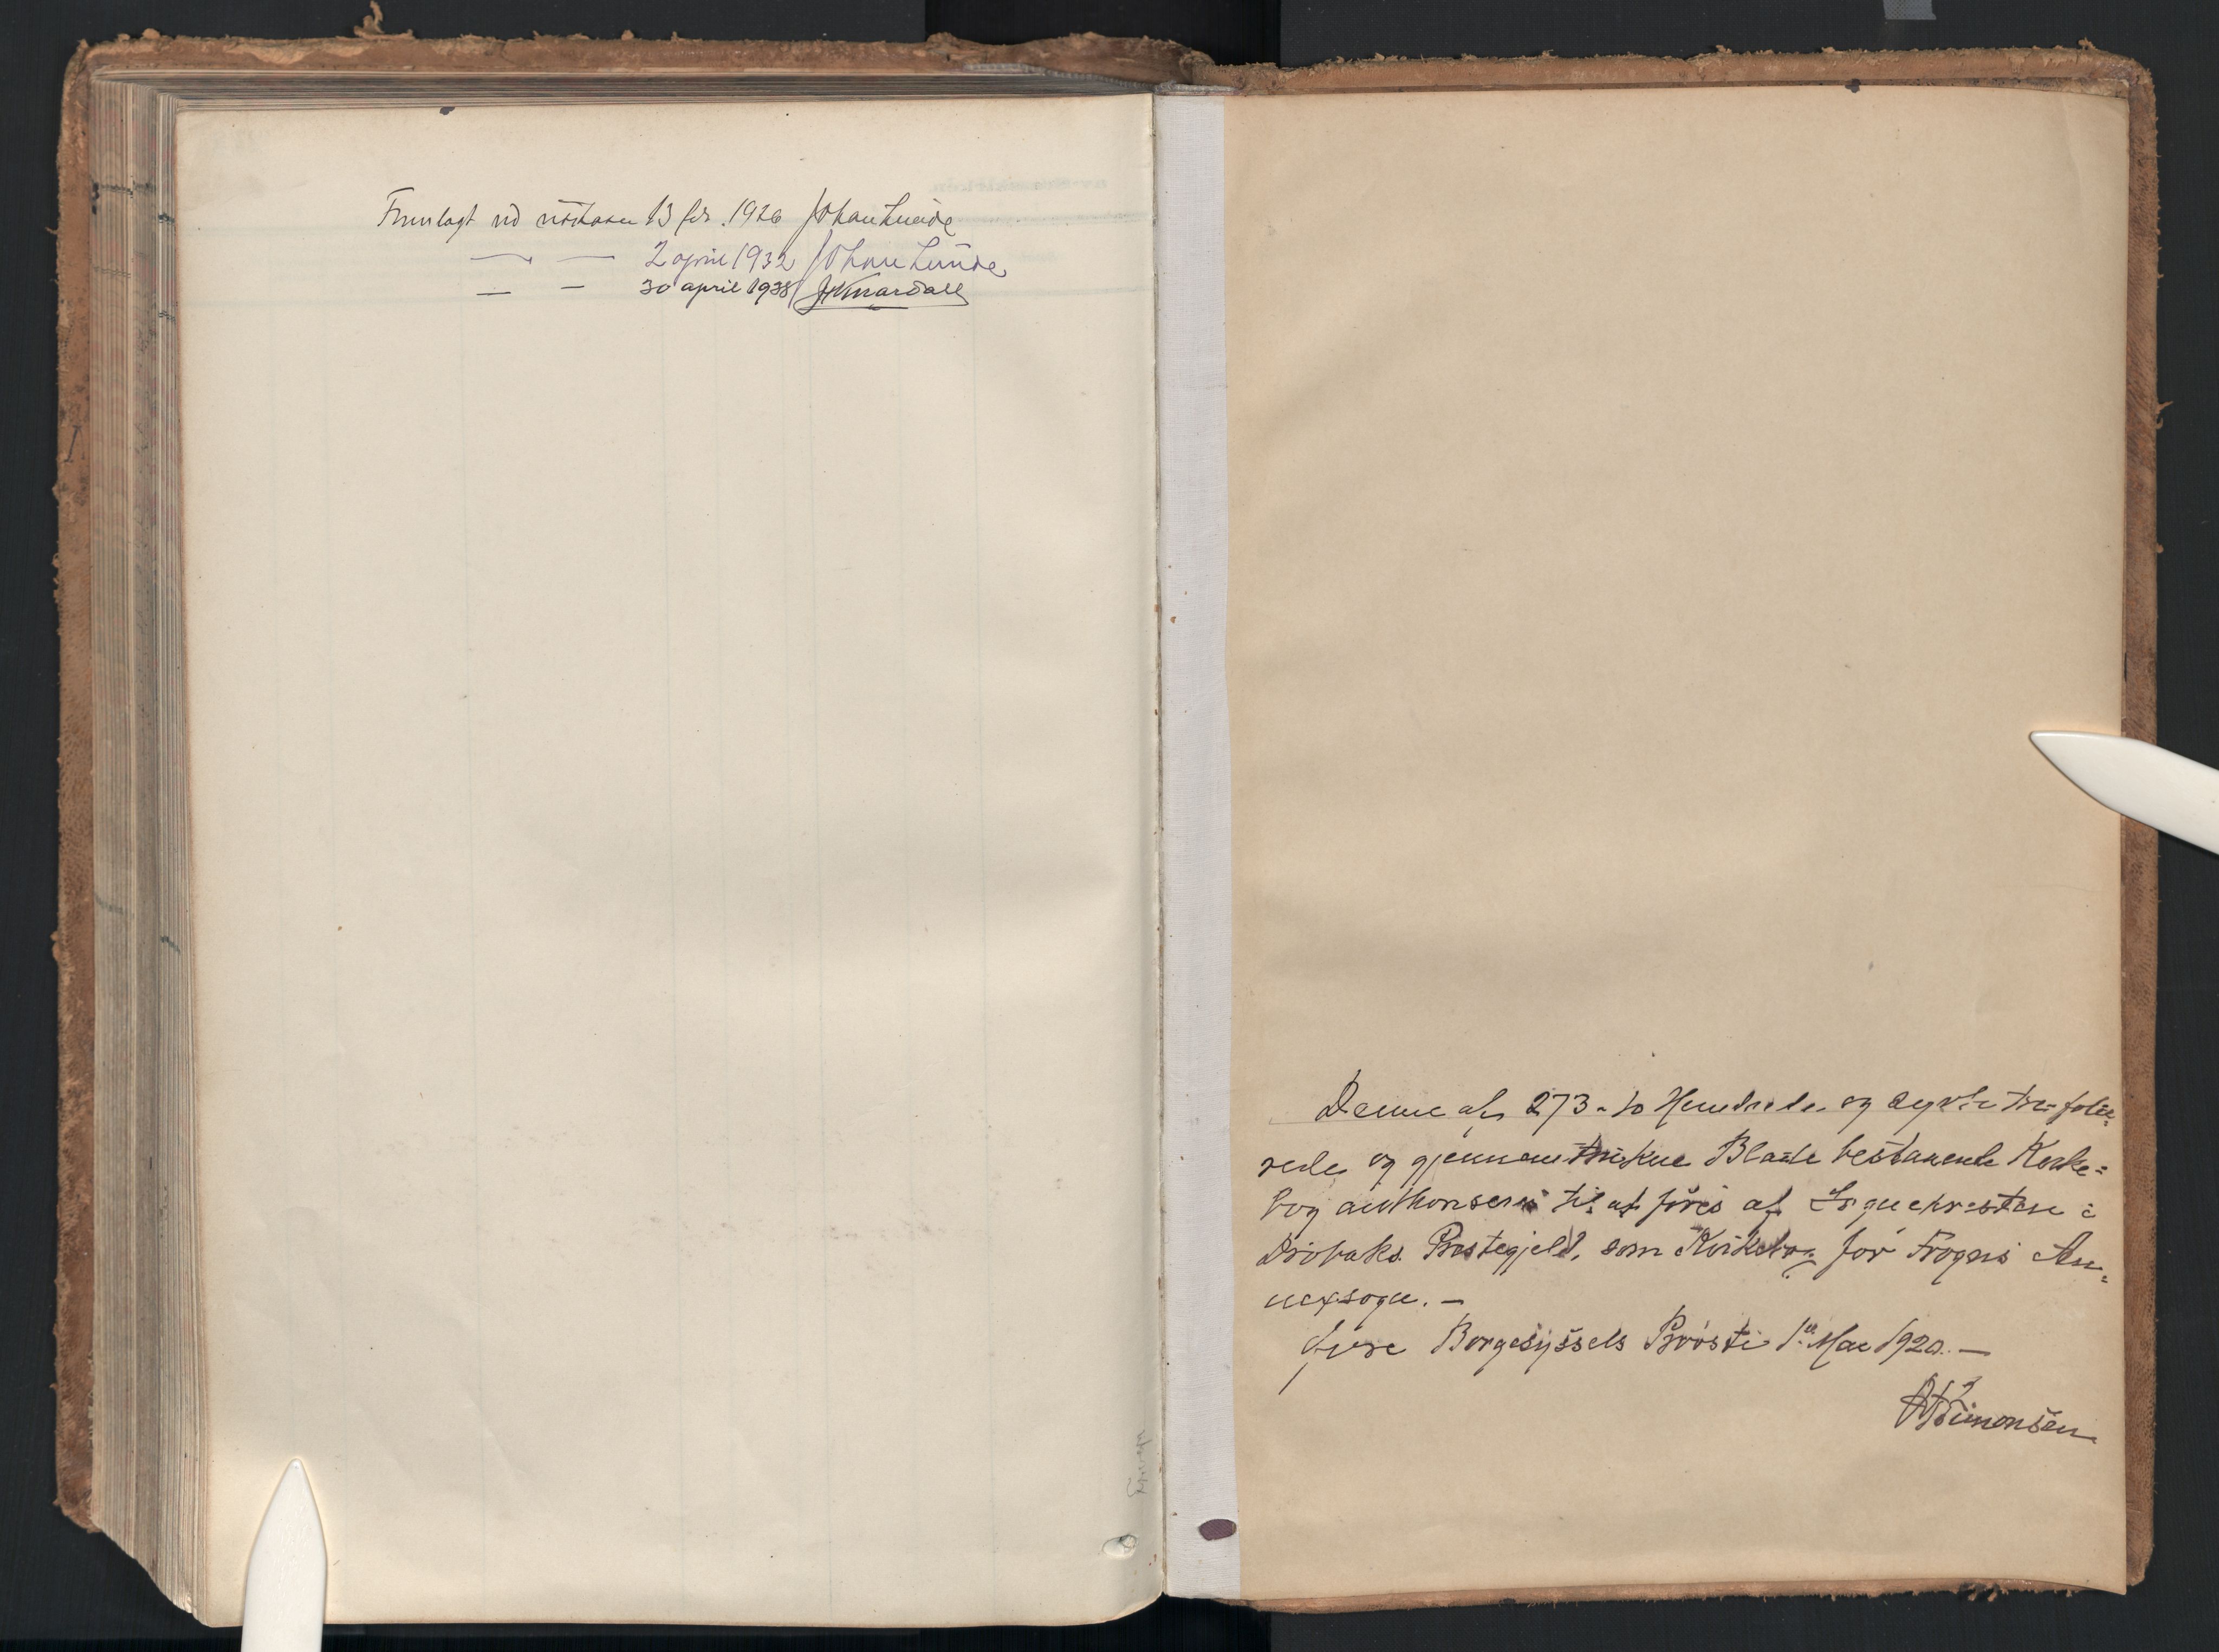 Fremlagt ved visitasen 13 febr. 1926 Johan Lunde
— — 2 april 1932 Johan Lunde
— — 30 april 1938
Denne af 273 - to Hundrede og sytti tre folie=
rede og gjennemtrukne Blade bestaaende Kirke=
bog authoriseres til at føres af Sognepresten i
Drøbaks Prestegjeld, som Kirkebog for Frogns An=
nexsogn. —
Øvre Borgesyssels Provsti 1ste Mai 1920. —
Simonsen